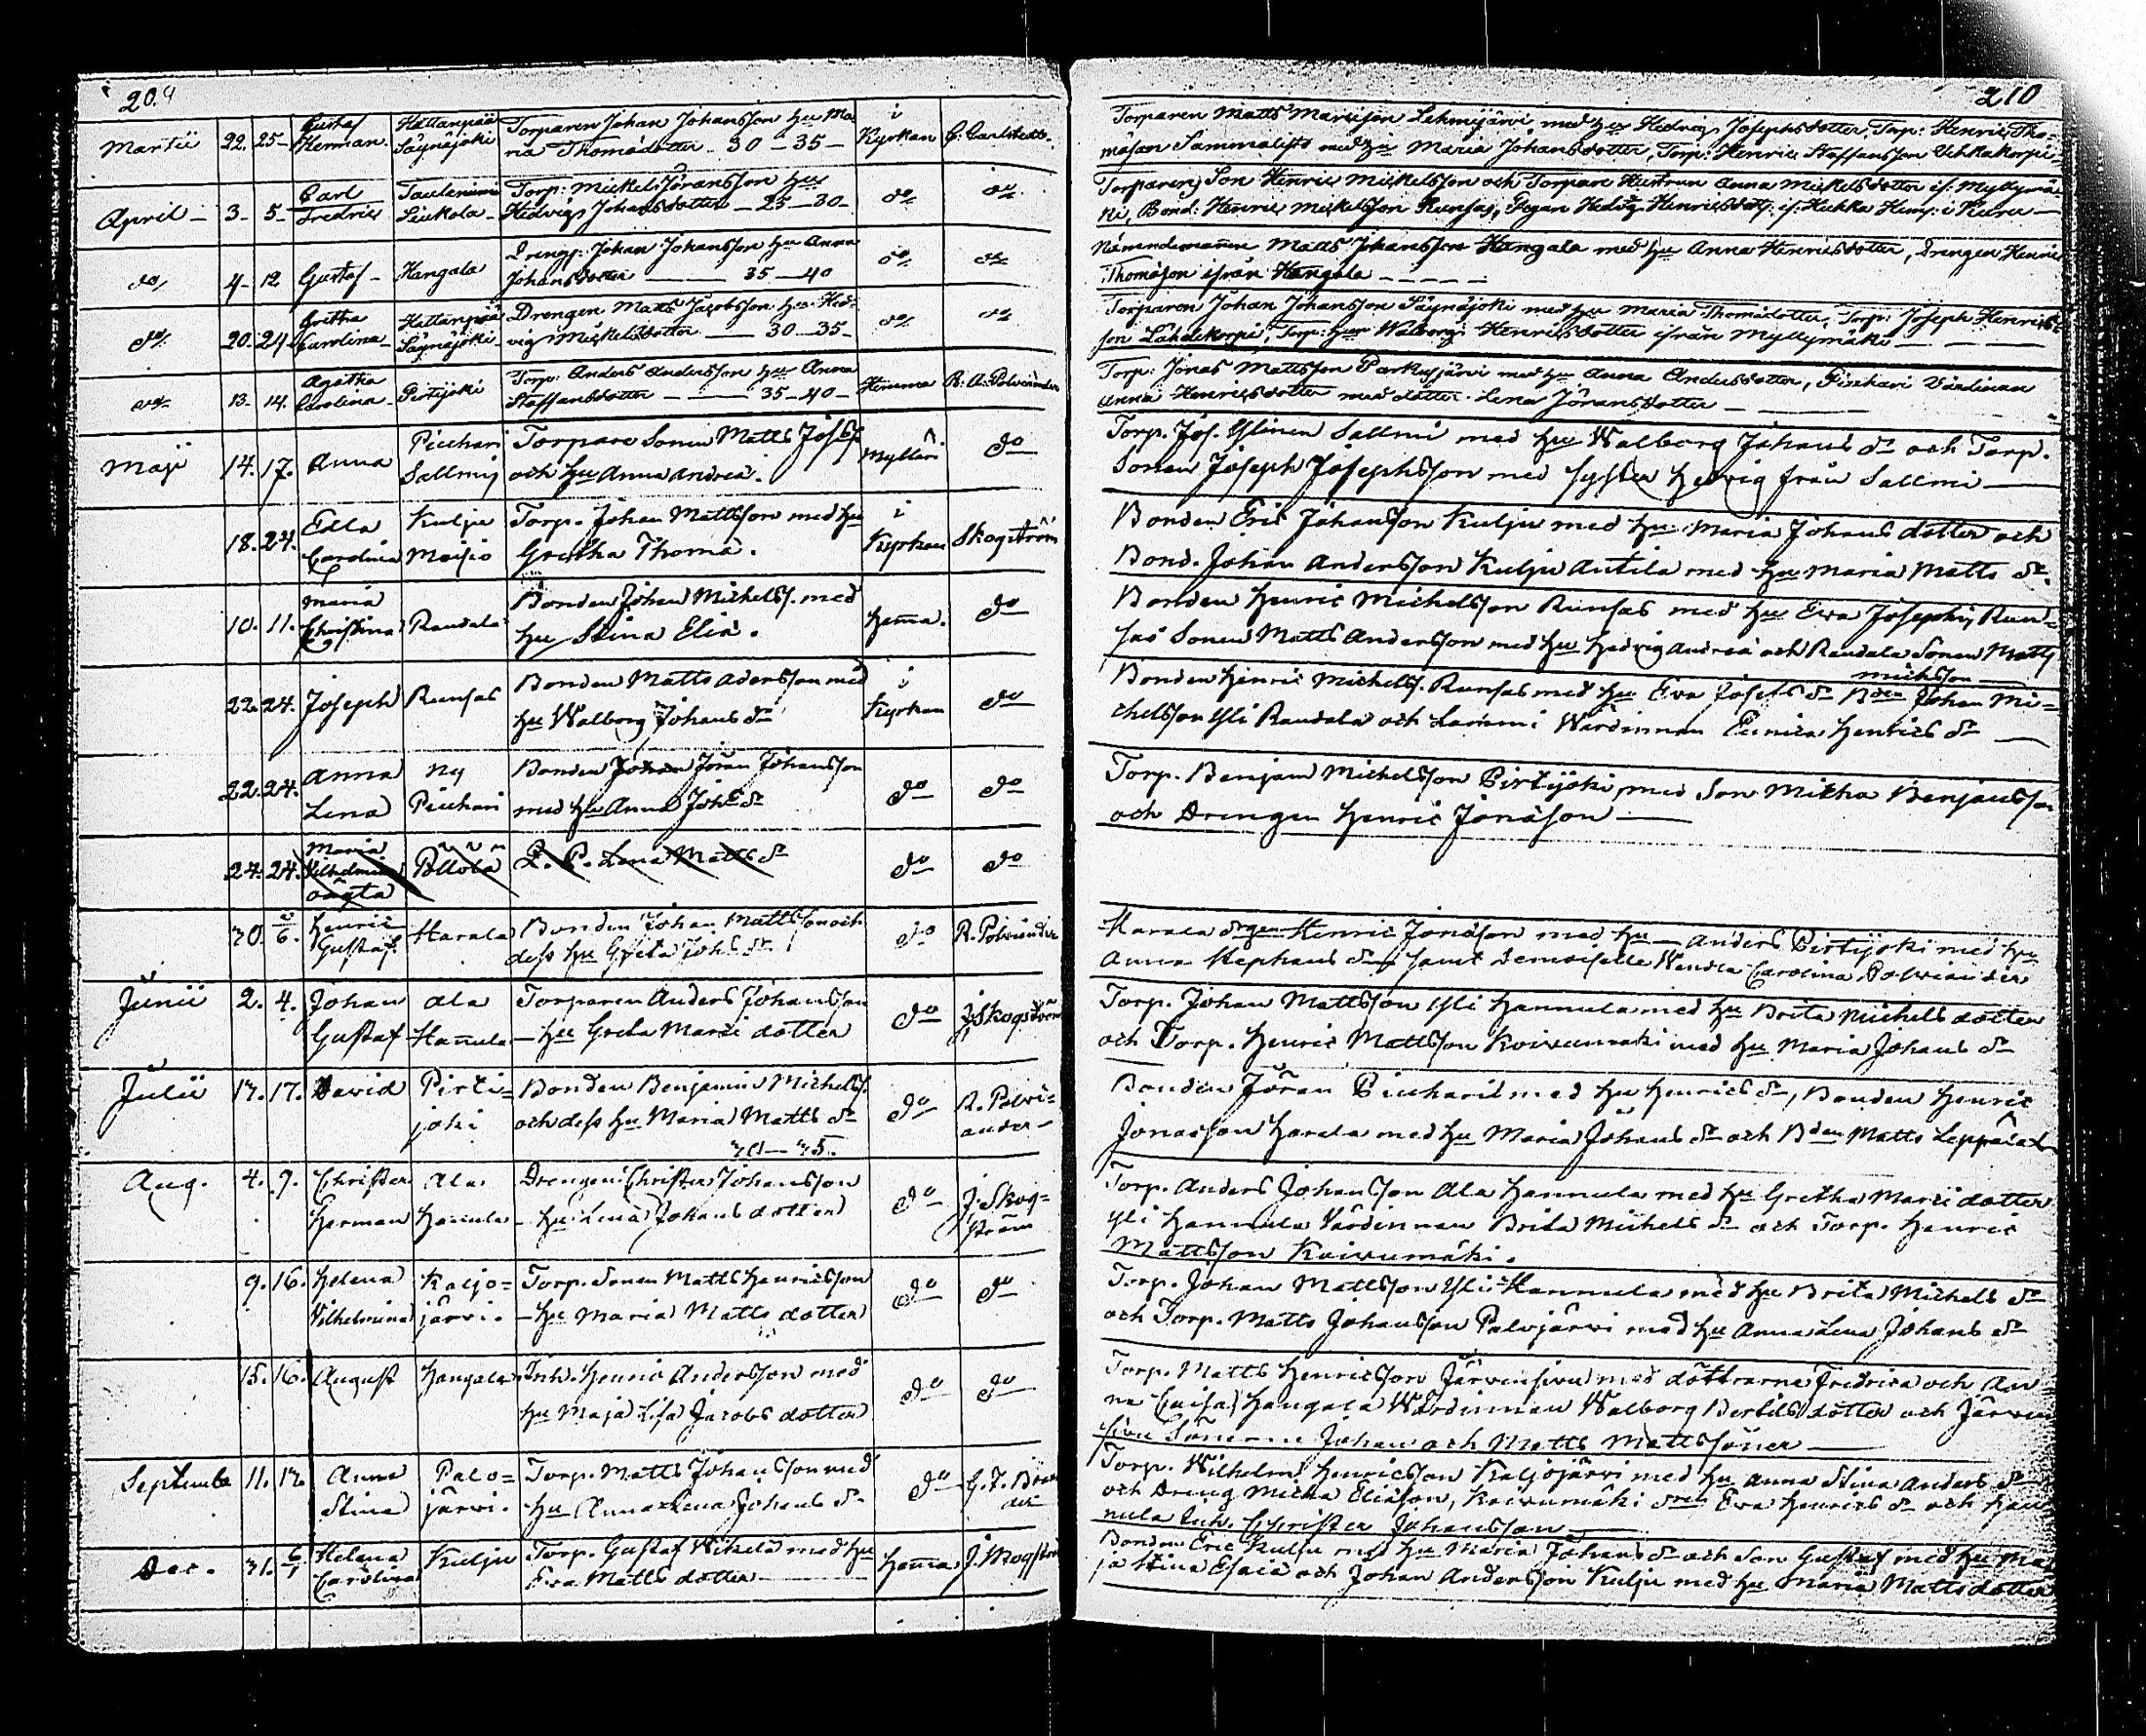 209
Martii 22. 25. Gustaf Herman. Hattanpää Säynäjoki Torparen Johan Johansson hu Ma
ria Thomædotter 30 - 35 - i Kyrkan C. Carlstedt.
April - 3 - 5 - Carl Fredric Taulaniemi Torp: Mickel Jöransson hu
Hedvig Johansdotter - 25 - 30 - do do
do 4 - 12 Gustaf - Hangala Drengs: Johan Johansson hu Anna
Johansdotter 35 - 40 do do
do 20. 24 Gretha Carolina - Hattanpää Säynäjoki Drengen Matts Jacobsson hu Hed-
vig Mickelsdotter 30 - 35 - do do
do 13. 14. Agatha Carolina - Pirtijoki Torp: Anders Andersson hu Anna
Staffansdotter 35 - 40 - Hemma
Maji 14. 17. Anna Piuhari Sallmi Torpare Sonen Matts Josefs
och hu Anna Andreæ. do
18. 24. Ella Carolina Kulju Moisio Torp. Johan Mattsson med hu
Gretha Thomæ. i Kyrkan Skogström
10. 11. Maria Christina Randala Bonden Johan Michelss. med
hu Stina Eliæ. hema. do
22. 24. Joseph Runsas Bonden Matts Adersson med
hu Walborg Johans dr i Kyrkan do
22. 24. Anna Lena Ny Piuhari Bonden Johan Jöran Johansson
med hu Anna Johs dr do do
24. 24. Maria Vilhelmina oägta Lena Matts dr do do
30. 6. Henric Gustaf. Harala Bonden Johan Mattsson och
dess hu Greta Johs dr do R. Polviander
Junii 2. 4. Johan Gustaf Ala Hanula Torparen Anders Johansson
- hu Greta Marci dotter do J. Skogström
Julii 17. 17. David Pirti=joki Bonden Benjamin Michelss.
och dess hu Maria Matts dr
30 - 35. do R. Polvi=ander -
Aug. 4. 9. Christer Herman Ala Hanula Drengen Christer Johansson
- hu Lena Johans dotter do J. Skog=ström
9. 16. Helena Vilhelmina Kaljo=järvi. Torp. Sonen Matts Henricsson
- hu Maria Matts dotter do do
15. 16. August Hangala Inh. Henric Andersson med
hu Maja Lisa Jacobs dotter do do
September 11. 13. Anna Stina Palo=järvi. Torp. Matts Johansson med
hu Anna Lena Johans dr do
Dec. 31. 6/1 Helena Carolina Kulju Torp. Gustaf Wikela med hu
Eva Matts dotter hema J. Skogström
210
Torparen Matts Marcijon Lehmijärvi med hu Hedvig Josephsdotter, Torp: Henric Tho-
mæson Sammalisto med hu Maria Johansdotter, Torp: Henric Staffansson Uhkakorpi
Torparens Son Henric Mickelsson och Torpare Hustrun Anna Mickelsdotter if: Myllymä
ki, Bond: Henric Mickelsson Runsas, Pigan Hedvig Henricsdott:
Nämndemannen Matts Johansson Hangala med hu Anna Henricsdotter, Drengen Henric
Thomæson ifrån Hangala - - - -
Torparen Johan Johansson Säynäjoki med hu Maria Thomædotter, Torp: Joseph Henrics-
son Lähdekorpi, Torp: hun Walborg Henricsdotter ifrån Myllymäki
Torp: Jonas Mattsson Parkujärvi med hu Anna Andersdotter, Piuhari Värdinnan
Anna Henricsdotter med dotter Lena Jöransdotter
Torp. Jos. Ylinen Sallmi med hu Walborg Johans dr och Torp.
Sonen Joseph Josephsson med syster Hedvig från Sallmi
Bonden Eric Johansson Kulju med hu Maria Johans dotter och
Bond. Johan Andersson Kulju Antila med hu Maria Matts dr.
Bonden Henric Michelsson Runsas med hu Eva Josephi, Run=
sas Sonen Matts Andersson med hu Hedvig Andreæ och Randala Sonen Matts
Michsson
Bonden Henric Michelss. Runsas med hu Eva Josefs dr Bden Johan Mi=
chelsson Yli Randala och Lammi Wärdinnan Henrics dr
Torp. Benjam Michelsson Pirtijoki, med Son Mickha Benjamsson
och Drengen Henric Jonæson
Harala drgen Henric Jonæson med hu - Anders Pirtijoki med hu
Anna Stephans dr samt Demoiselle Vendla Carolina Polviander
Torp. Johan Mattsson Yli Hannula med hu Brita Michels dotter
och Torp. Henric Mattsson Koivumäki med hu Maria Johans dr
Bonden Jöran Piuhari med hu Henrics dr, Bonden Henric
Jonasson Harala med hu Maria Johans dr och Bden Matts Leppälax
Torp. Anders Johansson Ala Hannula med hu Gretha Marci dotter
Yli Hannula Värdinnan Brita Michels dr och Torp. Henric
Mattsson Koivumäki.
Torp. Johan Mattsson Yli-Hannula med hu Brita Michels dr
och Torp. Matts Johansson Palojärvi med hu Anna Lena Johans dr
Torp. Matts Henricsson Järvensivu med döttrarna Fredrica och An
na Caisa, Hangala Wärdinnan Walborg Bertils dotter och Järven
sivu Sönerne Johan och Matts Mattssöner
Torp. Wilhelm Henricsson Kaljojärvi med hu Anna Stina Anders dr
och Dreng Micha Eliæson, Koivumäki Eva Henrics dr och Han
nula Inh. Christer Johansson
Bonden Eric Kulju med hu Maria Johans dr och Son Gustaf med hu Ma
ja Stina Esaiæ och Johan Andersson Kulju med hu Maria Matts dotter